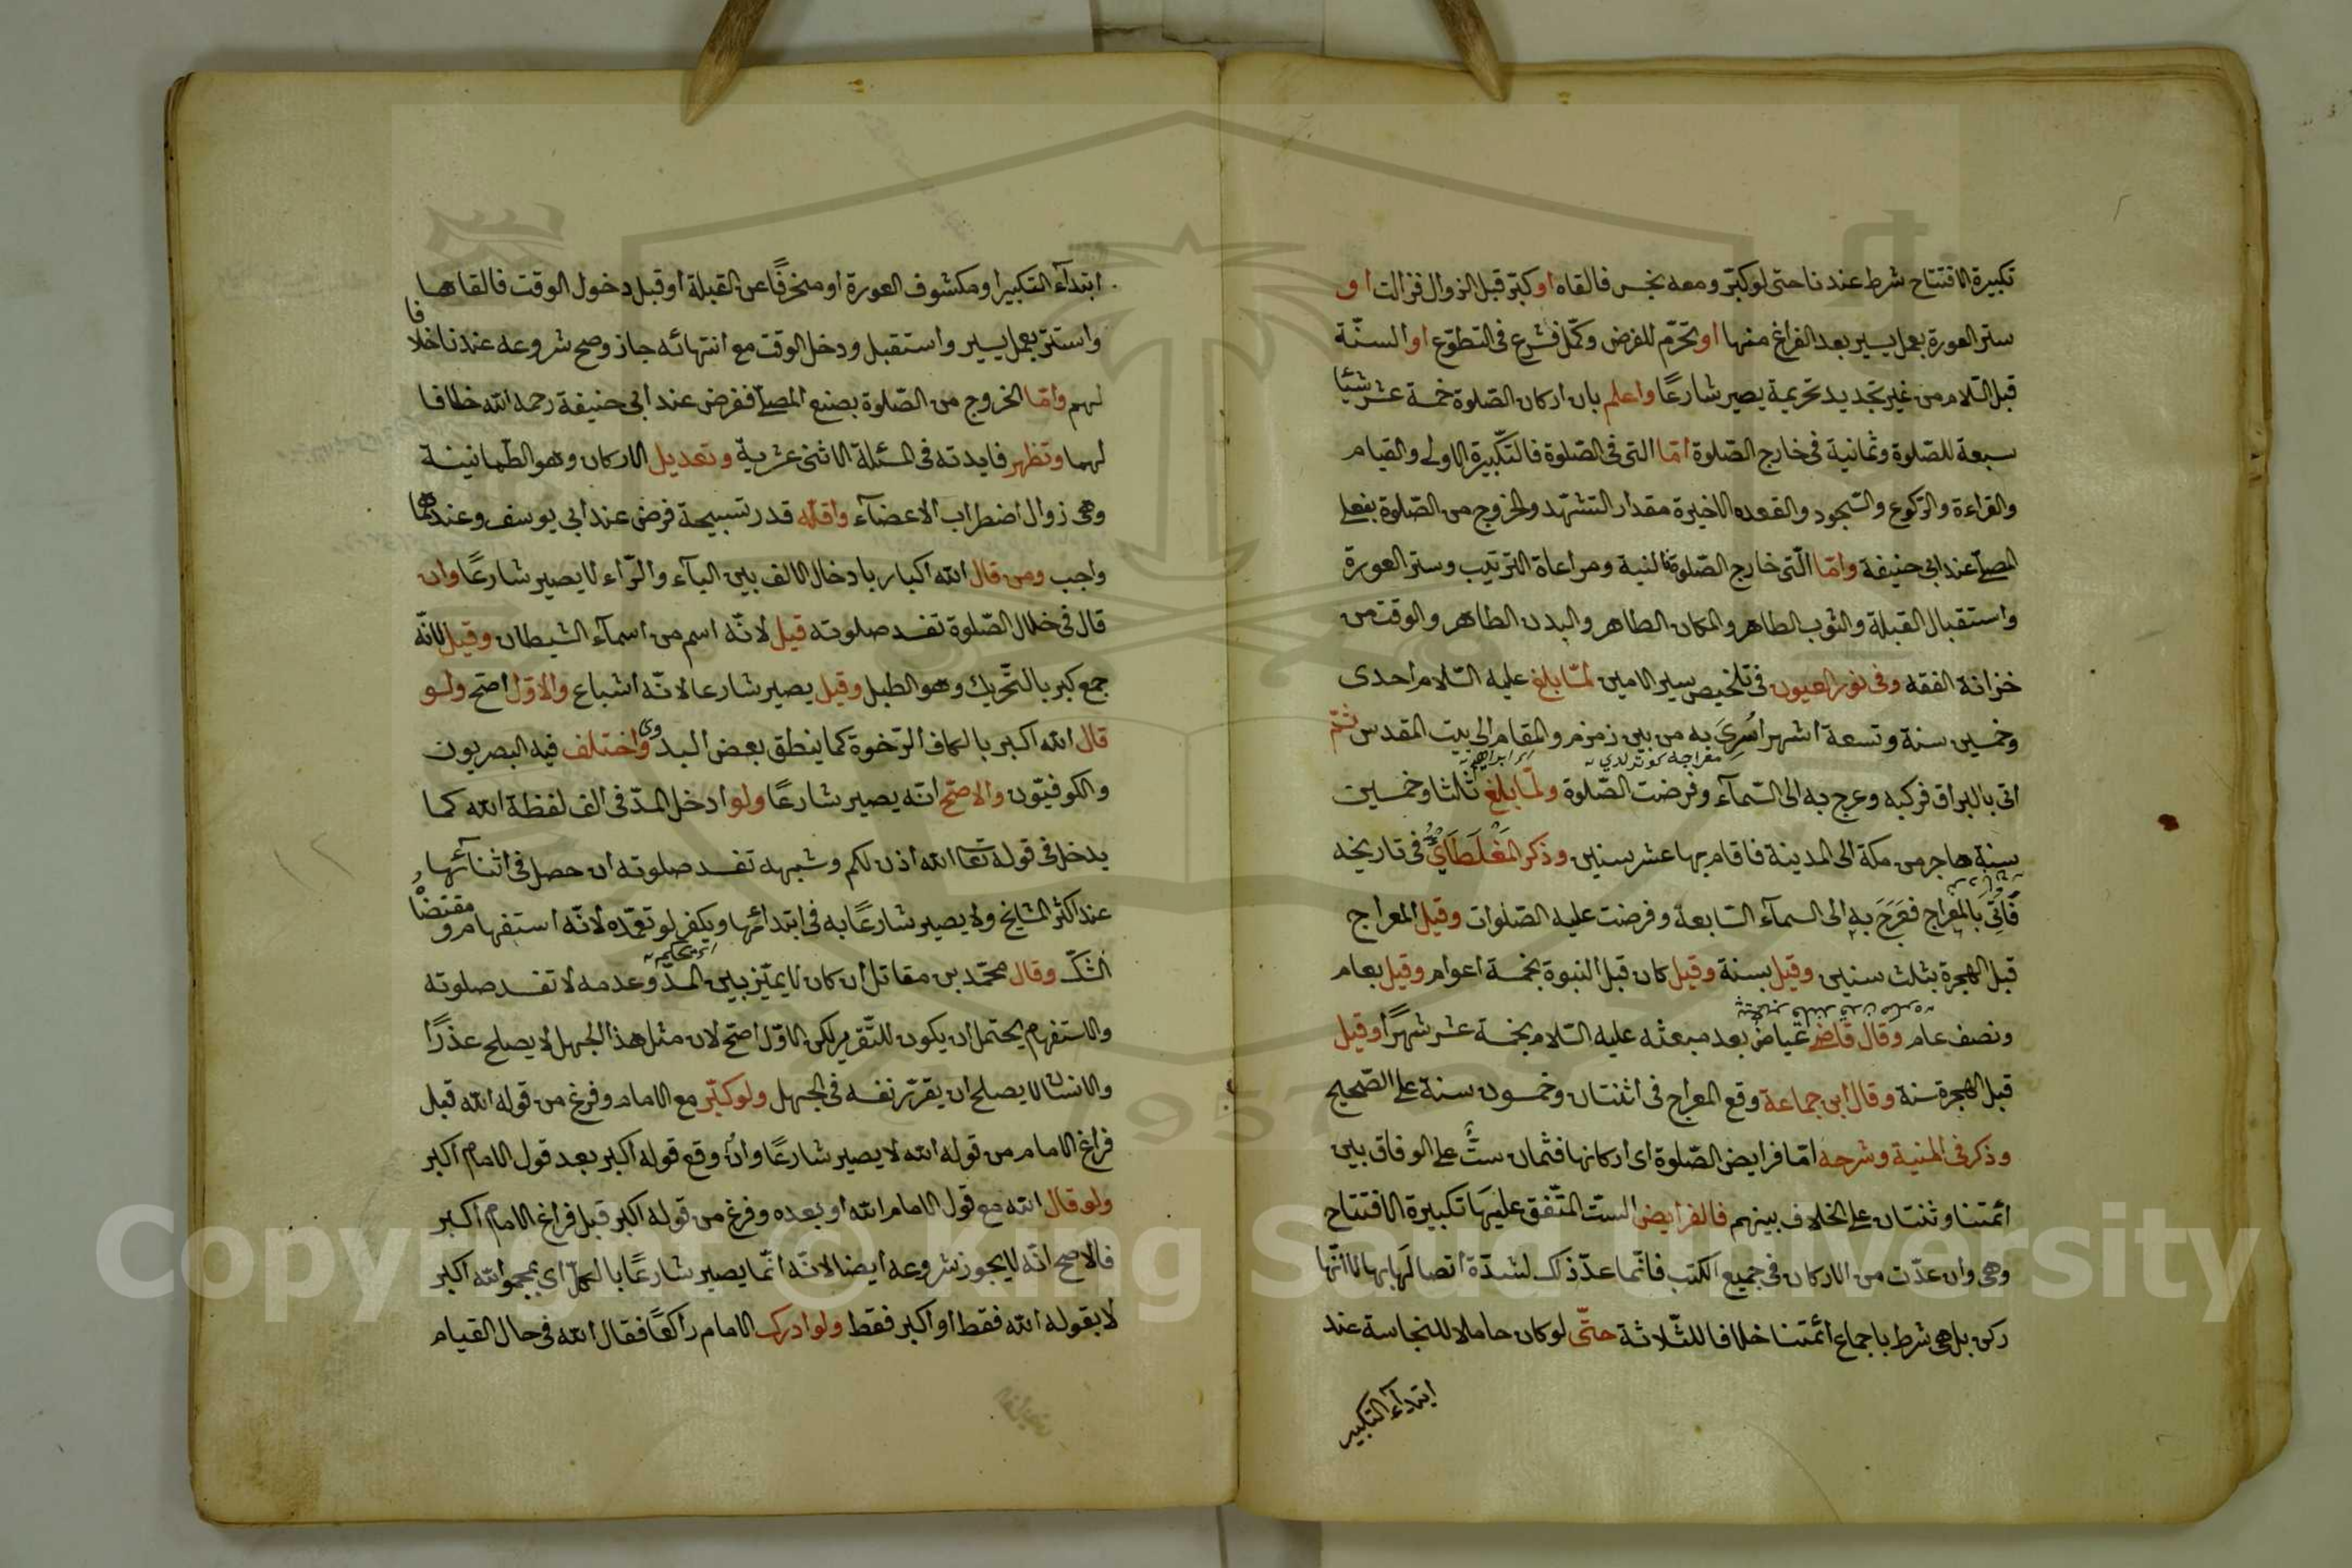 تكبيرة الافتتاح شرط عندنا حتى لو كبّر ومعه نجس فالقاه او كبّر قبل الزوال فزالت او
ستر العورة بعمل يسير بعد الفراغ منها او تحرّم للفرض وكمّل فشرع فى التطوّع او السنّة
قبل السّلام من غير تجديد تحريمة يصير شارعًا واعلم بان اركان الصّلوة خمسة عشر شيئا
سبعة للصّلوة وثمانية فى خارج الصّلوة امّا التى فى الصّلوة فالتّكبيرة الاولى والقيام
والقراءة والرّكوع والسّجود والقعده الاخيرة مقدار التشهّد والخروج من الصّلوة بفعل
المصلّى عند ابى حنيفة وامّا الّتى خارج الصّلوة فالنية ومراعاة الترتيب وستر العورة
واستقبال القبلة والثوب الطاهر والمكان الطاهر والبدن الطاهر والوقت من
خزانة الفقه وفى نور العيون فى تلخيص سير الامين لمّا بلغ عليه السّلام احدى
وخمسين سنة وتسعة اشهر اسرى به من بين زمزم والمقام الى بيت المقدس ثمّ
اتى بالبراق فركبه وعرج به الى السّمآء وفرضت الصّلوة ولمّا بلغ ثلثا وخمسين
سنة هاجر من مكة الى المدينة فاقام بها عشر سنين وذكر المغلطاىّ فى تاريخه
فاتى بالمعراج فعرج به الى السمآء السّابعة وفرضت عليه الصّلوات وقيل المعراج
قبل الهجرة بثلث سنين وقيل بسنة وقيل كان قبل النبوة بخمسة اعوام وقيل بعام
ونصف عام وقال قاضى عياض بعد مبعثه عليه السّلام بخمسة عشر شهرًا وقيل
قبل الهجرة سنة وقال ابن جماعة وقع المعراج فى اثنتان وخمسون سنة على الصّحيح
وذكر فى المنية وشرحه امّا فرايض الصّلوة اى اركانها فثمان ستّ على الوفاق بين
ائمتنا وثنتان على الخلاف بينهم فالفرايض الستّ المتّفق عليها تكبيرة الافتتاح
وهى وان عدّت من الاركان فى جميع الكتب فانّما عدّ ذاك لشدّة اتصالها بها لا انّها
ركن بل هى شرط باجماع ائمّتنا خلافا للثّلاثة حتّى لو كان حاملا للنجاسة عند
ابتدآء التكبير
ابتدآء التكبير او مكشوف العورة او منحرفًا عن القبلة او قبل دخول الوقت فالقاها
واستتر بعمل يسير واستقبل ودخل الوقت مع انتهائه جاز وصح شروعه عندنا خلافا
لهم وامّا الخروج من الصّلوة بصنع المصلّى ففرض عند ابى حنيفة رحمه الله خلافا
لهما وتظهر فايدته فى المسئلة الاثنى عشرية وتعديل الاركان وهو الطّمانينة
وهى زوال اضطراب الاعضآء واقلّه قدر تسبيحة فرض عند ابى يوسف وعندهما
واجب ومن قال الله اكبار بادخال الالف بين البآء والرّاء لا يصير شارعًا وان
قال فى خلال الصّلوة تفسد صلوته قيل لانّه اسم من اسمآء الشيطان وقيل لانّه
جمع كبر بالتّحريك وهو الطبل وقيل يصير شارعا لانّه اشباع والاوّل اصّح ولو
قال الله اكبر بالكاف الرّخوة كما ينطق بعض البدوى واختلف فيه البصريون
والكوفيّون والاصّح انّه يصير شارعًا ولو ادخل المدّ فى الف لفظة الله كما
يدخل فى قوله تعا الله اذن لكم وشبهه تفسد صلوته ان حصل فى اثنائها
عند اكثر المشايخ ولا يصير شارعًا به فى ابتدائها ويكفر لو تعمّده لانّه استفهام ومقتضاه
الشكّ وقال محمّد بن مقاتل ان كان لا يميّز بين المدّ وعدمه لا تفسد صلوته
والاستفهام يحتمل ان يكون للتّقرير لكن الاوّل اصّح لان مثل هذا الجهل لا يصلح عذرًا
والانسا لا يصلح ان يقرّر نفسه فى الجهل ولو كبّر مع الامام وفرغ من قوله الله قبل
فراغ الامام من قوله الله لا يصير شارعًا وان وقع قوله اكبر بعد قول الامام اكبر
ولو قال الله مع قول الامام الله او بعده وفرغ من قوله اكبر قبل فراغ الامام اكبر
فالاصح انّه لا يجوز شروعه ايضا لانّه انّما يصير شارعًا بالكلّ اى بمجموع الله اكبر
لا بقوله الله فقط او اكبر فقط ولو ادرك الامام راكعًا فقال الله فى حال القيام
Copyright © King Saud University
1957